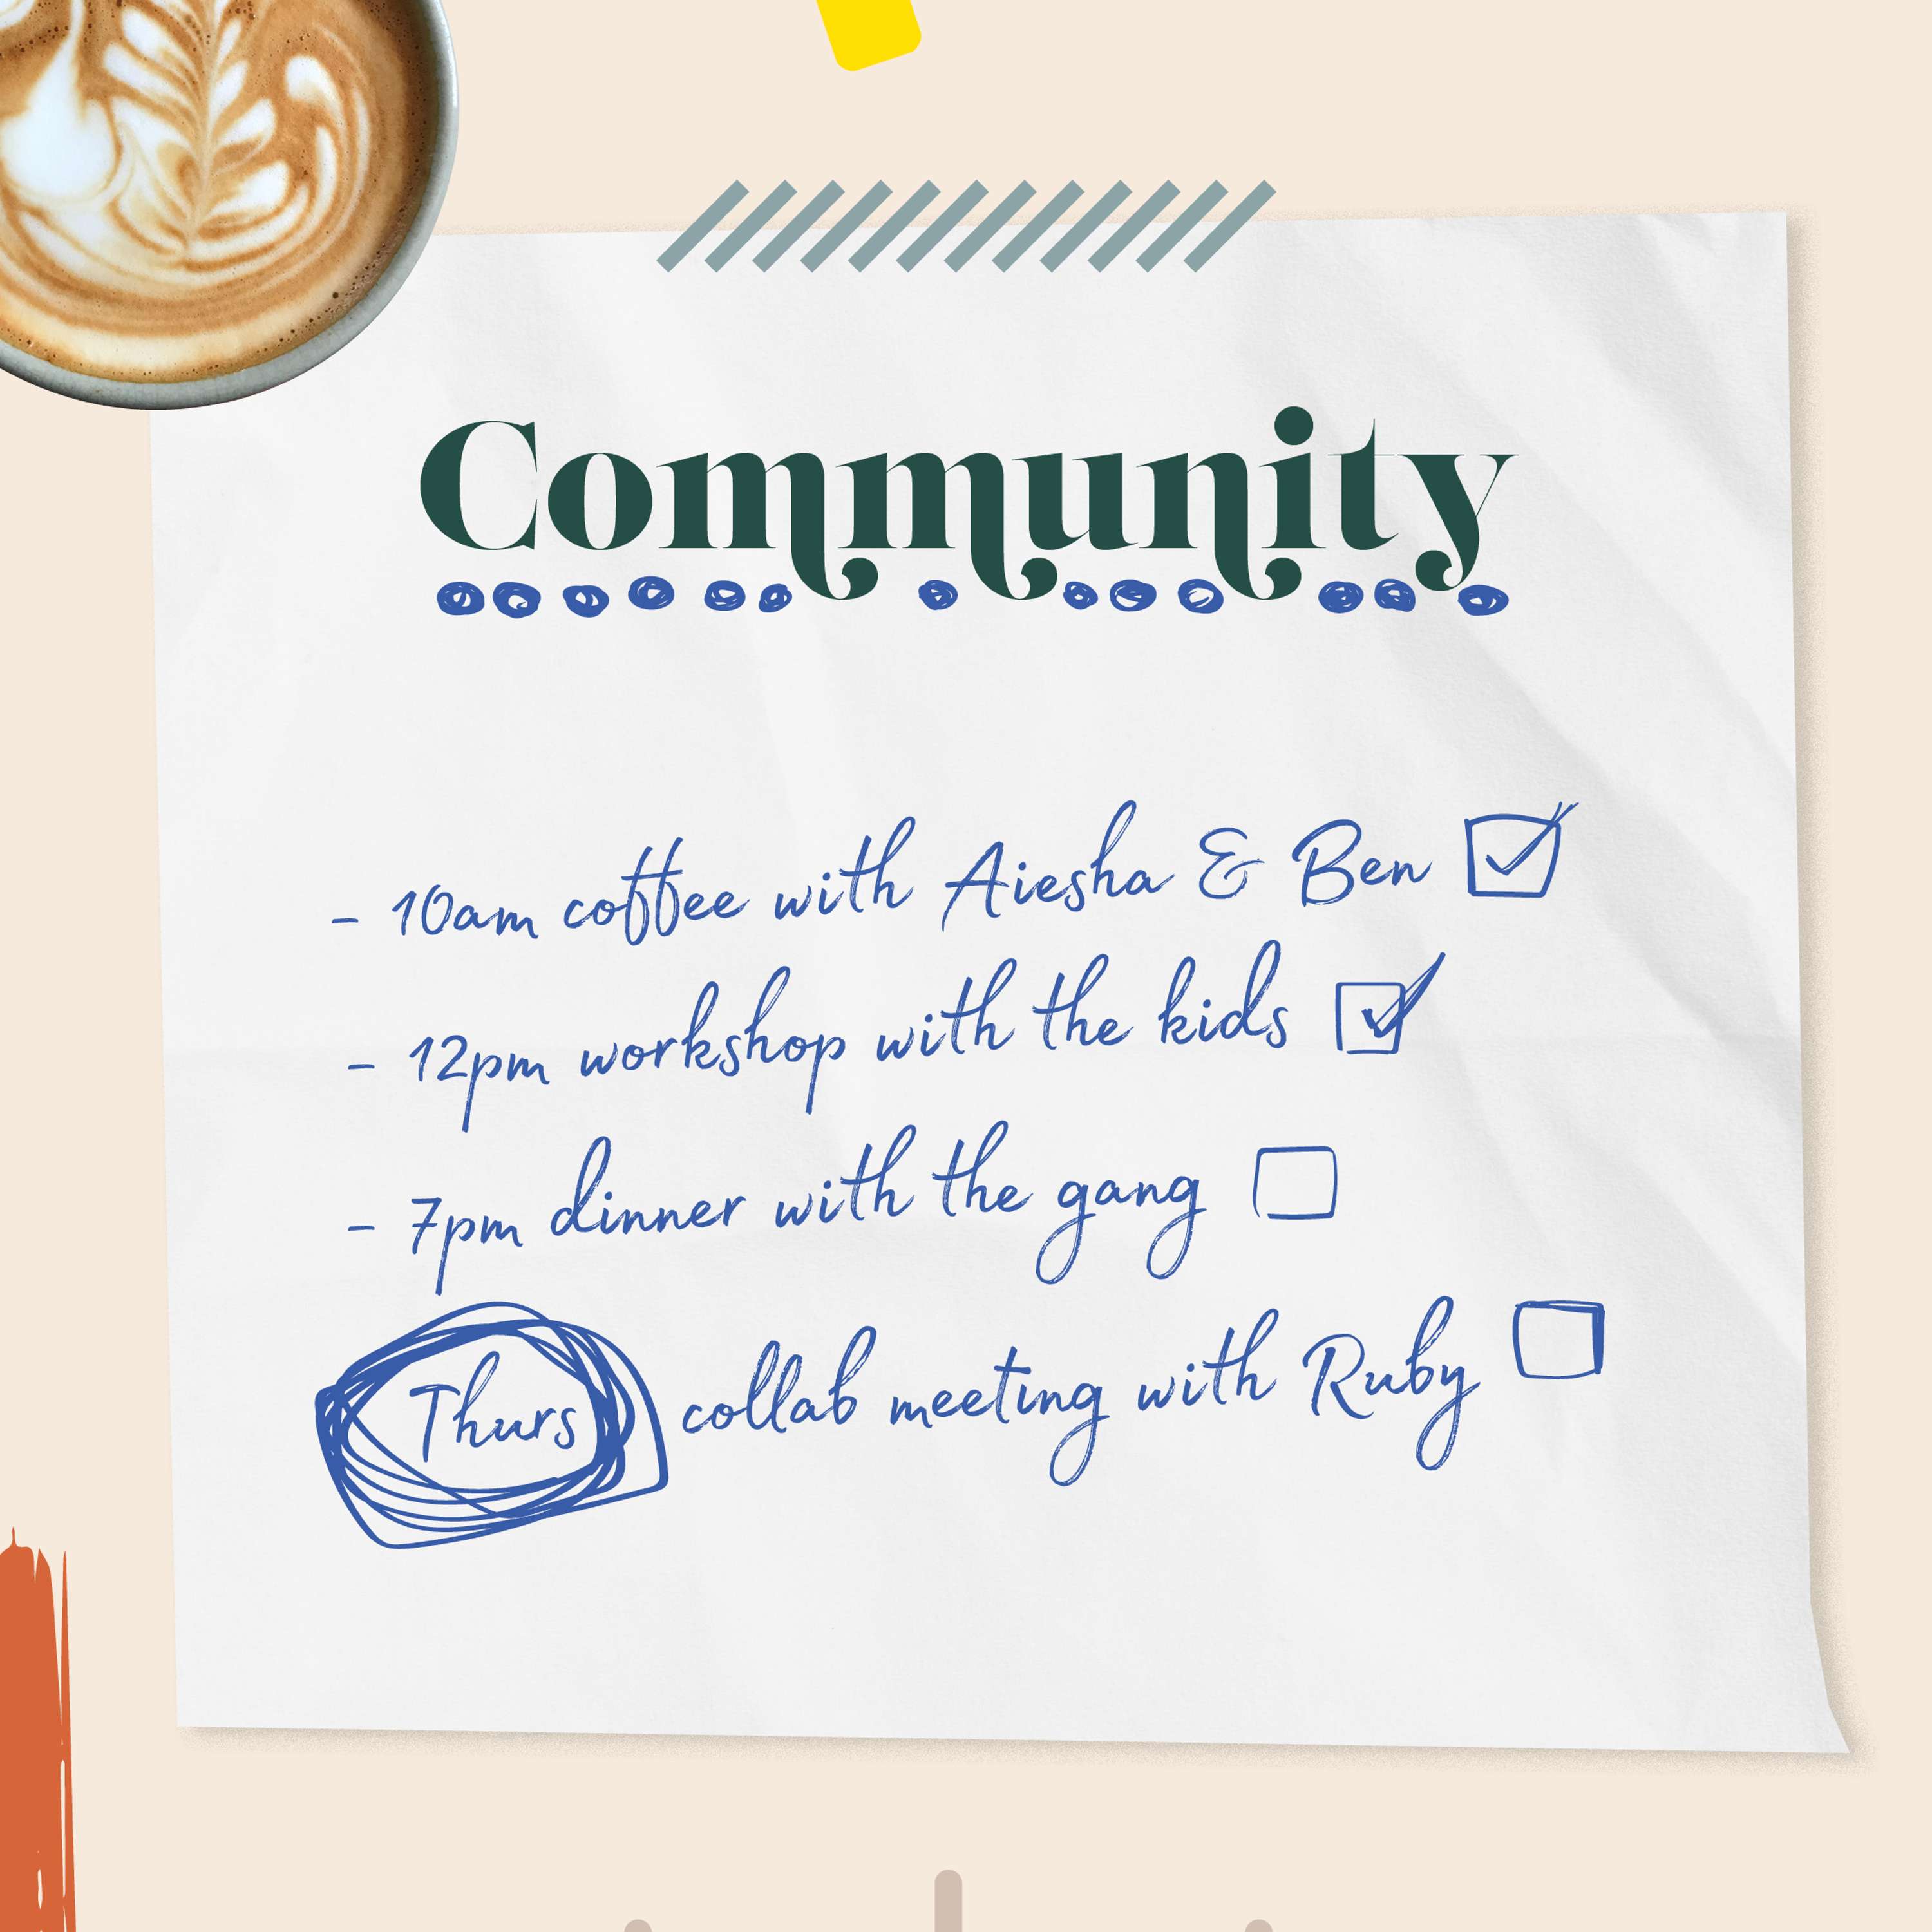 Community
- 10am coffee with Aiesha & Ben
- 12pm workshop with the kids
- 7pm dinner with the gang
Thurs collab meeting with Ruby